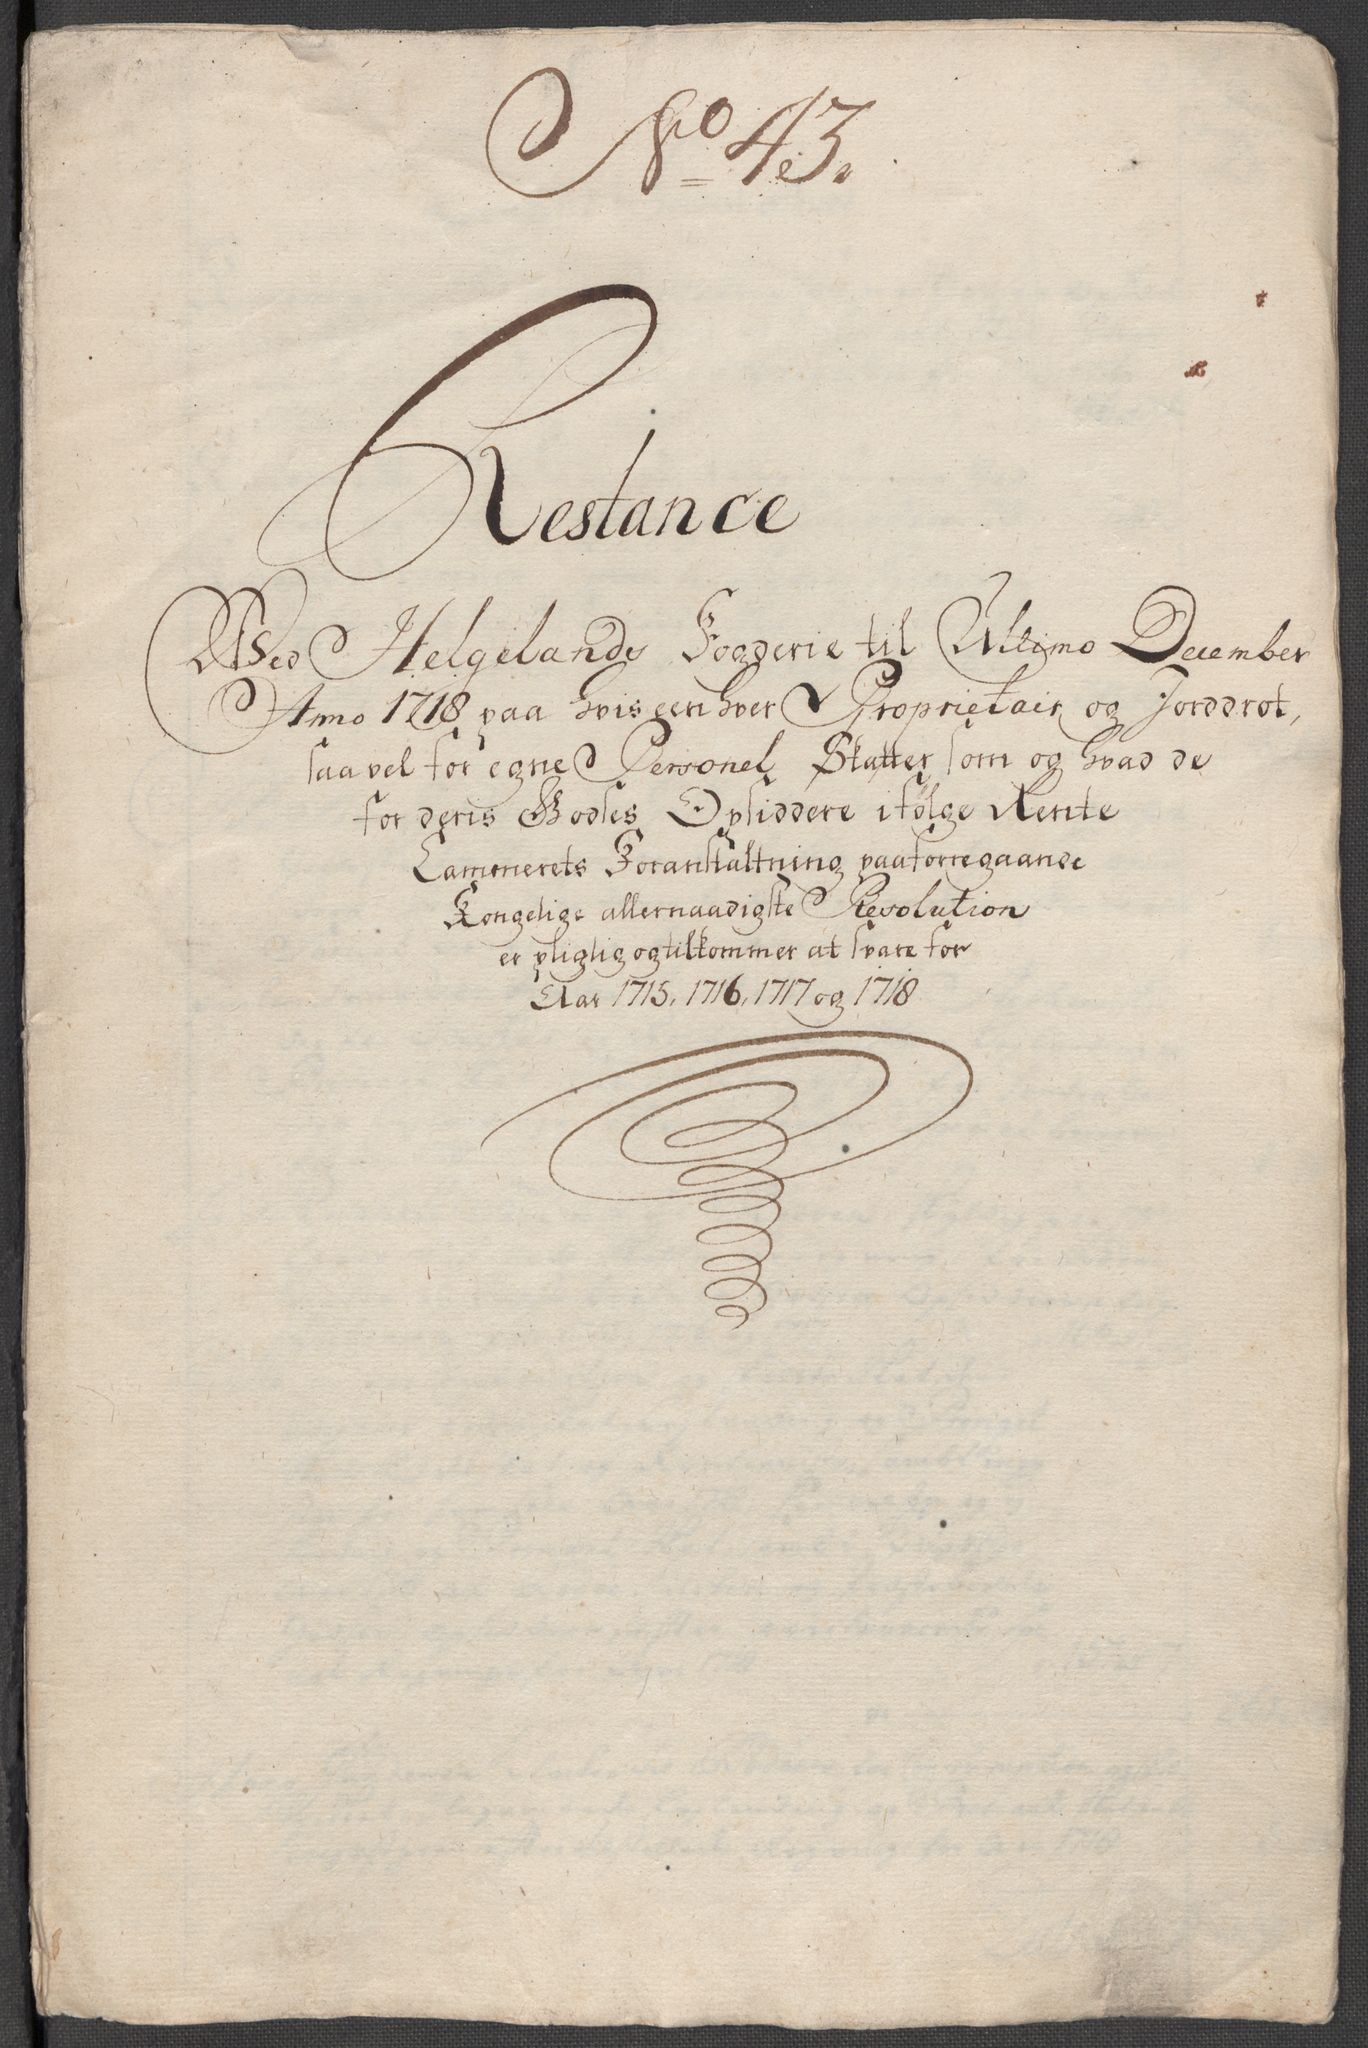 No 43.
Restance
Wed Helgelands Fogderie til Ultimo December
Anno 1718 paa hvis een hver Proprietair og Jorddrot,
saavel for egne Personel Skatter som og hvad de
for deris Godses Opsiddere ifølge Rente
Cammerets Foranstaltning paa forregaande
Kongelige allernaadigste Resolution
er pligtig og tilkommer at svare for
Aar 1715, 1716, 1717 og 1718